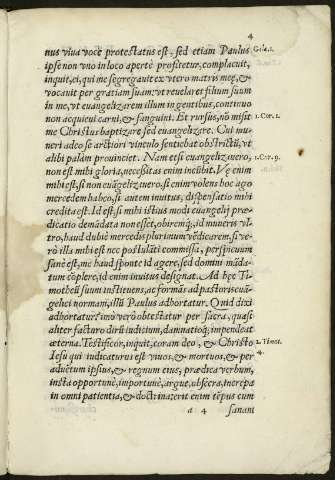 4
nus viua vocè protestatus est, sed etiam Paulus
ipse non vno in loco apertè profitetur, complacuit,
Gala.1.
inquit, ei, qui me segregauit ex vtero matris meę, &
vocauit per gratiam suam: vt reuelaret filium suum
in me, vt euangelizarem illum in gentibus, continuo
non acquieui carni, & sanguini. Et rursus, nō misit
me Christus baptizare sed euangelizare. Cui mu-
1.Cor.1.
neri adeo se arctiori vinculo sentiebat obstrictū, vt
alibi palàm prouinciet. Nam etsi euangelizauero,
1.Cor.9.
non est mihi gloria, necessitas enim incūbit. Vę enim
mihi est, si non euāgelizauero: si enim volens hoc ago
mercedem habeo, si autem inuitus, dispensatio mihi
credita est. Id est, si mihi istius modi euangelij præ-
dicatio demādata non esset, obirēmq́, id muneris vl-
tro, haud dubiè mercedis plurimum vēdicarem, si ve-
rò illa mihi est nec postulāti commissa, perspicuum
sanè est, me haud sponte id agere, sed domini mādā-
tum cōplere, id enim inuitus designat. Ad hęc Ti-
motheū suum instituens, ac formās ad pastoris euā-
gelici normam, illū Paulus adhortatur. Quid dixi
adhortatur? imò verò obtestatur per sacra, quasi
aliter facturo dirū iudicium, damnatioq́; impendeat
æterna. Testificor, inquit, coram deo, & Christo
2.Timot.
4.
Iesu qui iudicaturus est viuos, & mortuos, & per
aduētum ipsius, & regnum eius, prædica verbum,
insta opportunè, importunè, argue, obsecra, increpa
in omni patientia, & doctrina: erit enim tēpus cum
a 4 sanam